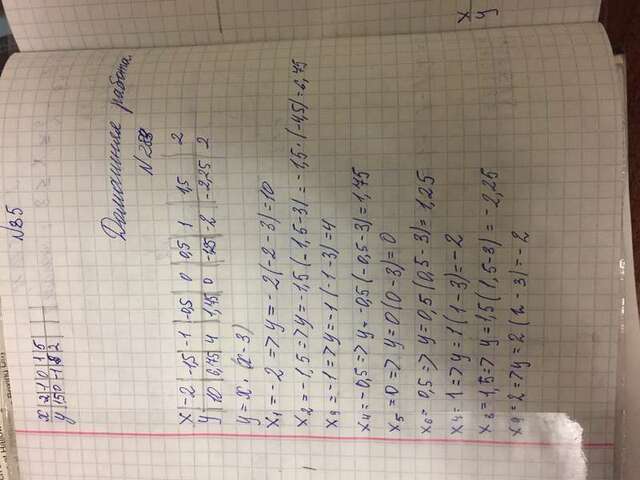 x 2 -1 0 1 5
y 15 0 -1 2
Домашняя работа.
x -2 -1,5 -1 -0,5 0 0,5 1 1,5 2
y 10 6,75 4 1,75 0 -1,25 -2 -2,25 2
y = x · (x - 3)
x₁ = -2 => y = -2(-2-3) = 10
x₂ = -1,5 => y = -1,5(-1,5-3) = -1,5 · (-4,5) = 6,75
x₃ = -1 => y = -1(-1-3) = 4
x₄ = -0,5 => y = -0,5(-0,5-3) = 1,75
x₅ = 0 => y = 0(0-3) = 0
x₆ = 0,5 => y = 0,5(0,5-3) = 1,25
x₇ = 1 => y = 1(1-3) = -2
x₈ = 1,5 => y = 1,5(1,5-3) = -2,25
x₉ = 2 => y = 2(2-3) = -2
x
y